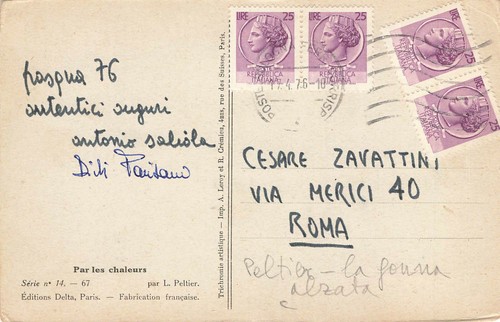 pasqua 76
autentici auguri
antonio saliola
LIRE 25
LIRE 25
LIRE 25
LIRE 25
REPUBBLICA ITALIANA
4.76-18
POSTE
CESARE ZAVATTINI
VIA MERICI 40
ROMA
Peltier - la gonna
alzata
Par les chaleurs
Série n° 14. — 67 par L. Peltier.
Éditions Delta, Paris. - Fabrication française.
Trichromie artistique - Imp. A. Leroy et R. Crémieu, 4ans, rue des Suisses, Paris.